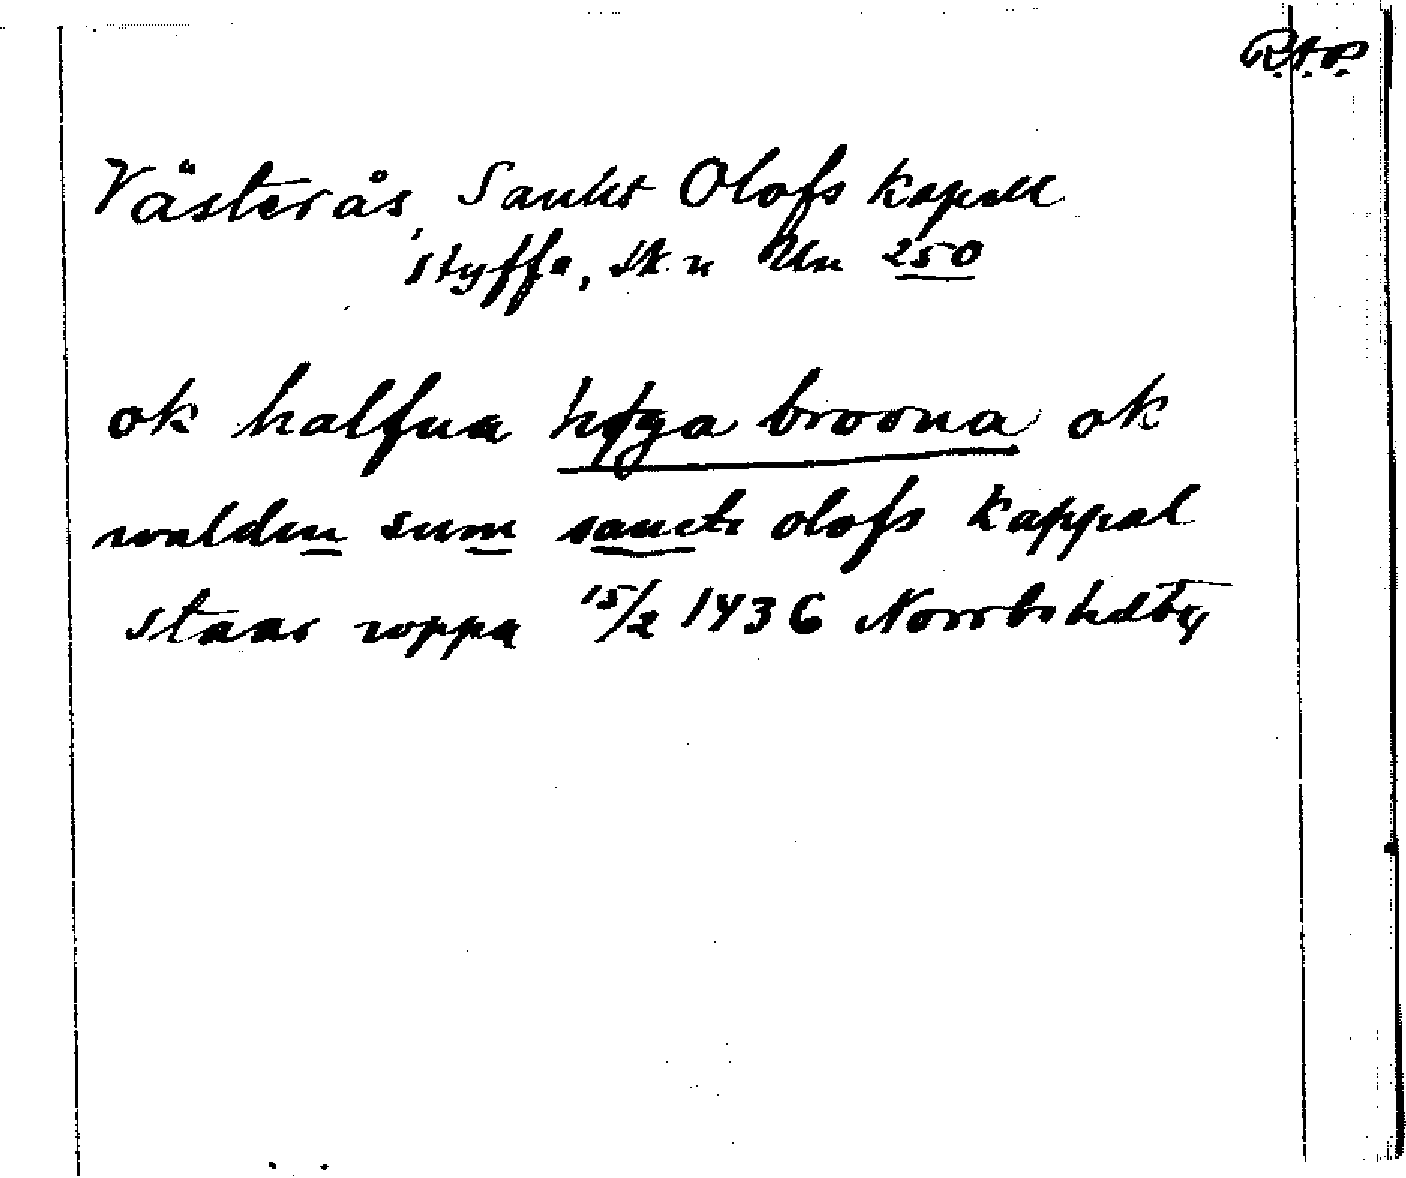 R.A.P.
Västerås, Sankt Olofs kapell
Styffe, Sk. u Un 250
ok halfua høga broona ok
walden sum sancte olofs kappal
staar uppa 15/2 1436 Norrbohelby